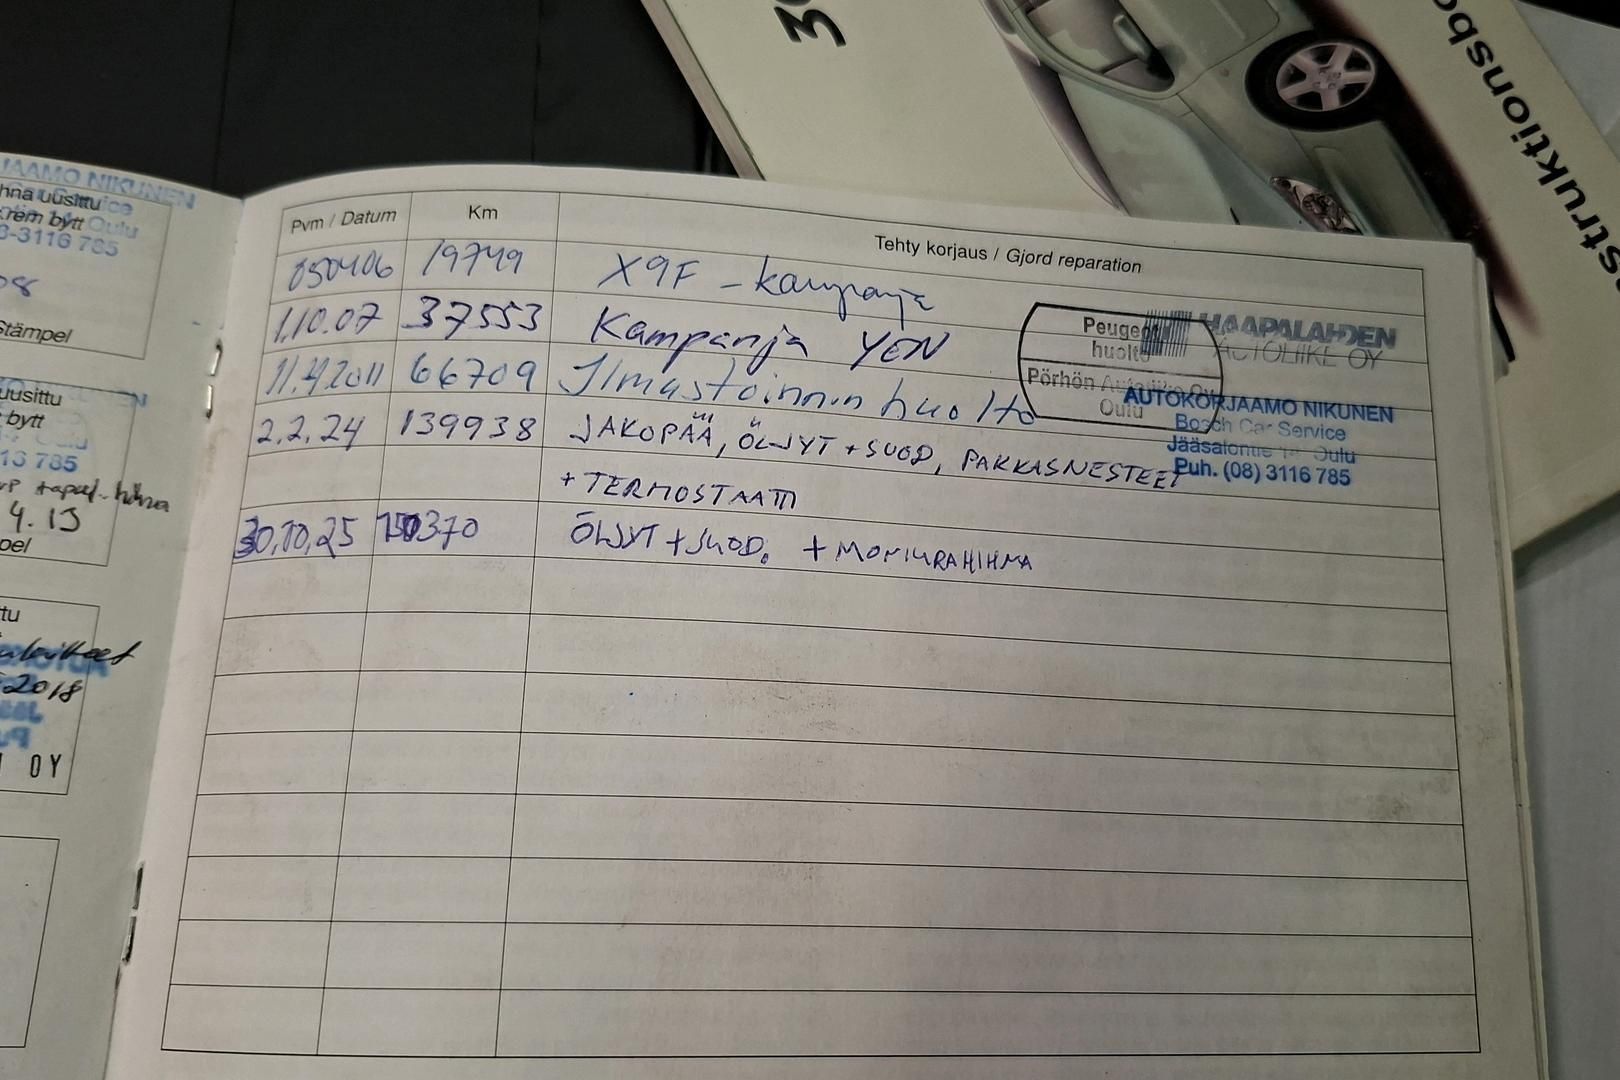 30
struktionsbo
JAAMO NIKUNEN
hna uusittu
rem bytt
Oulu
8-3116 785
08
Stämpel
uusittu
bytt
13 785
4.13
pel
tu
2018
OY
Pvm / Datum Km Tehty korjaus / Gjord reparation
050406 19749 X9F - kampanja
HAAPALAHDEN
AUTOLIIKE OY
1.10.07 37553 Kampanja YEN
Peugeot
huolto
Pörhön Autoliike Oy
Oulu
11.4.2011 66709 Ilmastoinnin huolto
AUTOKORJAAMO NIKUNEN
Bosch Car Service
Jääsalontie 14 Oulu
Puh. (08) 3116 785
2.2.24 139938 JAKOPÄÄ, ÖLJYT + SUOD, PAKKASNESTEET
+ TERMOSTAATTI
30.10.25 150370 ÖLJYT + SUOD. + MONIURAHIHNA